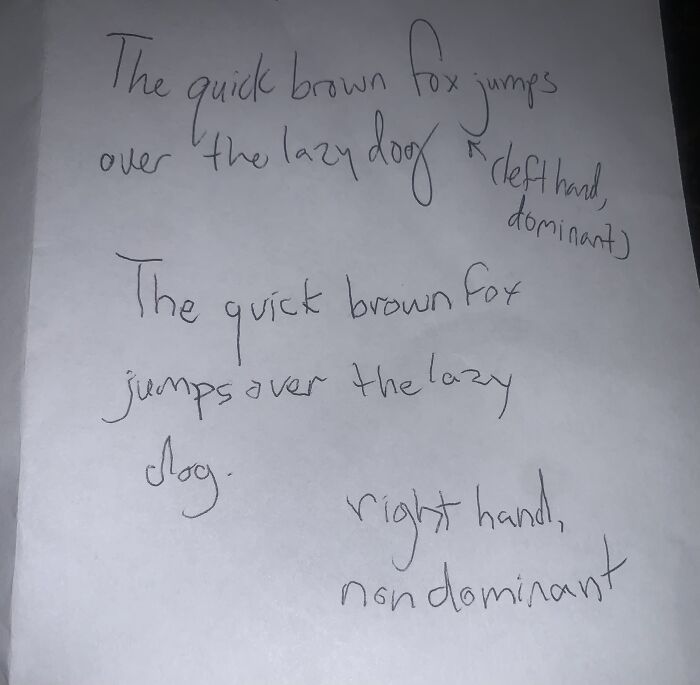 The quick brown fox jumps
over the lazy dog
(left hand,
dominant)
The quick brown fox
jumps over the lazy
dog.
right hand,
non dominant